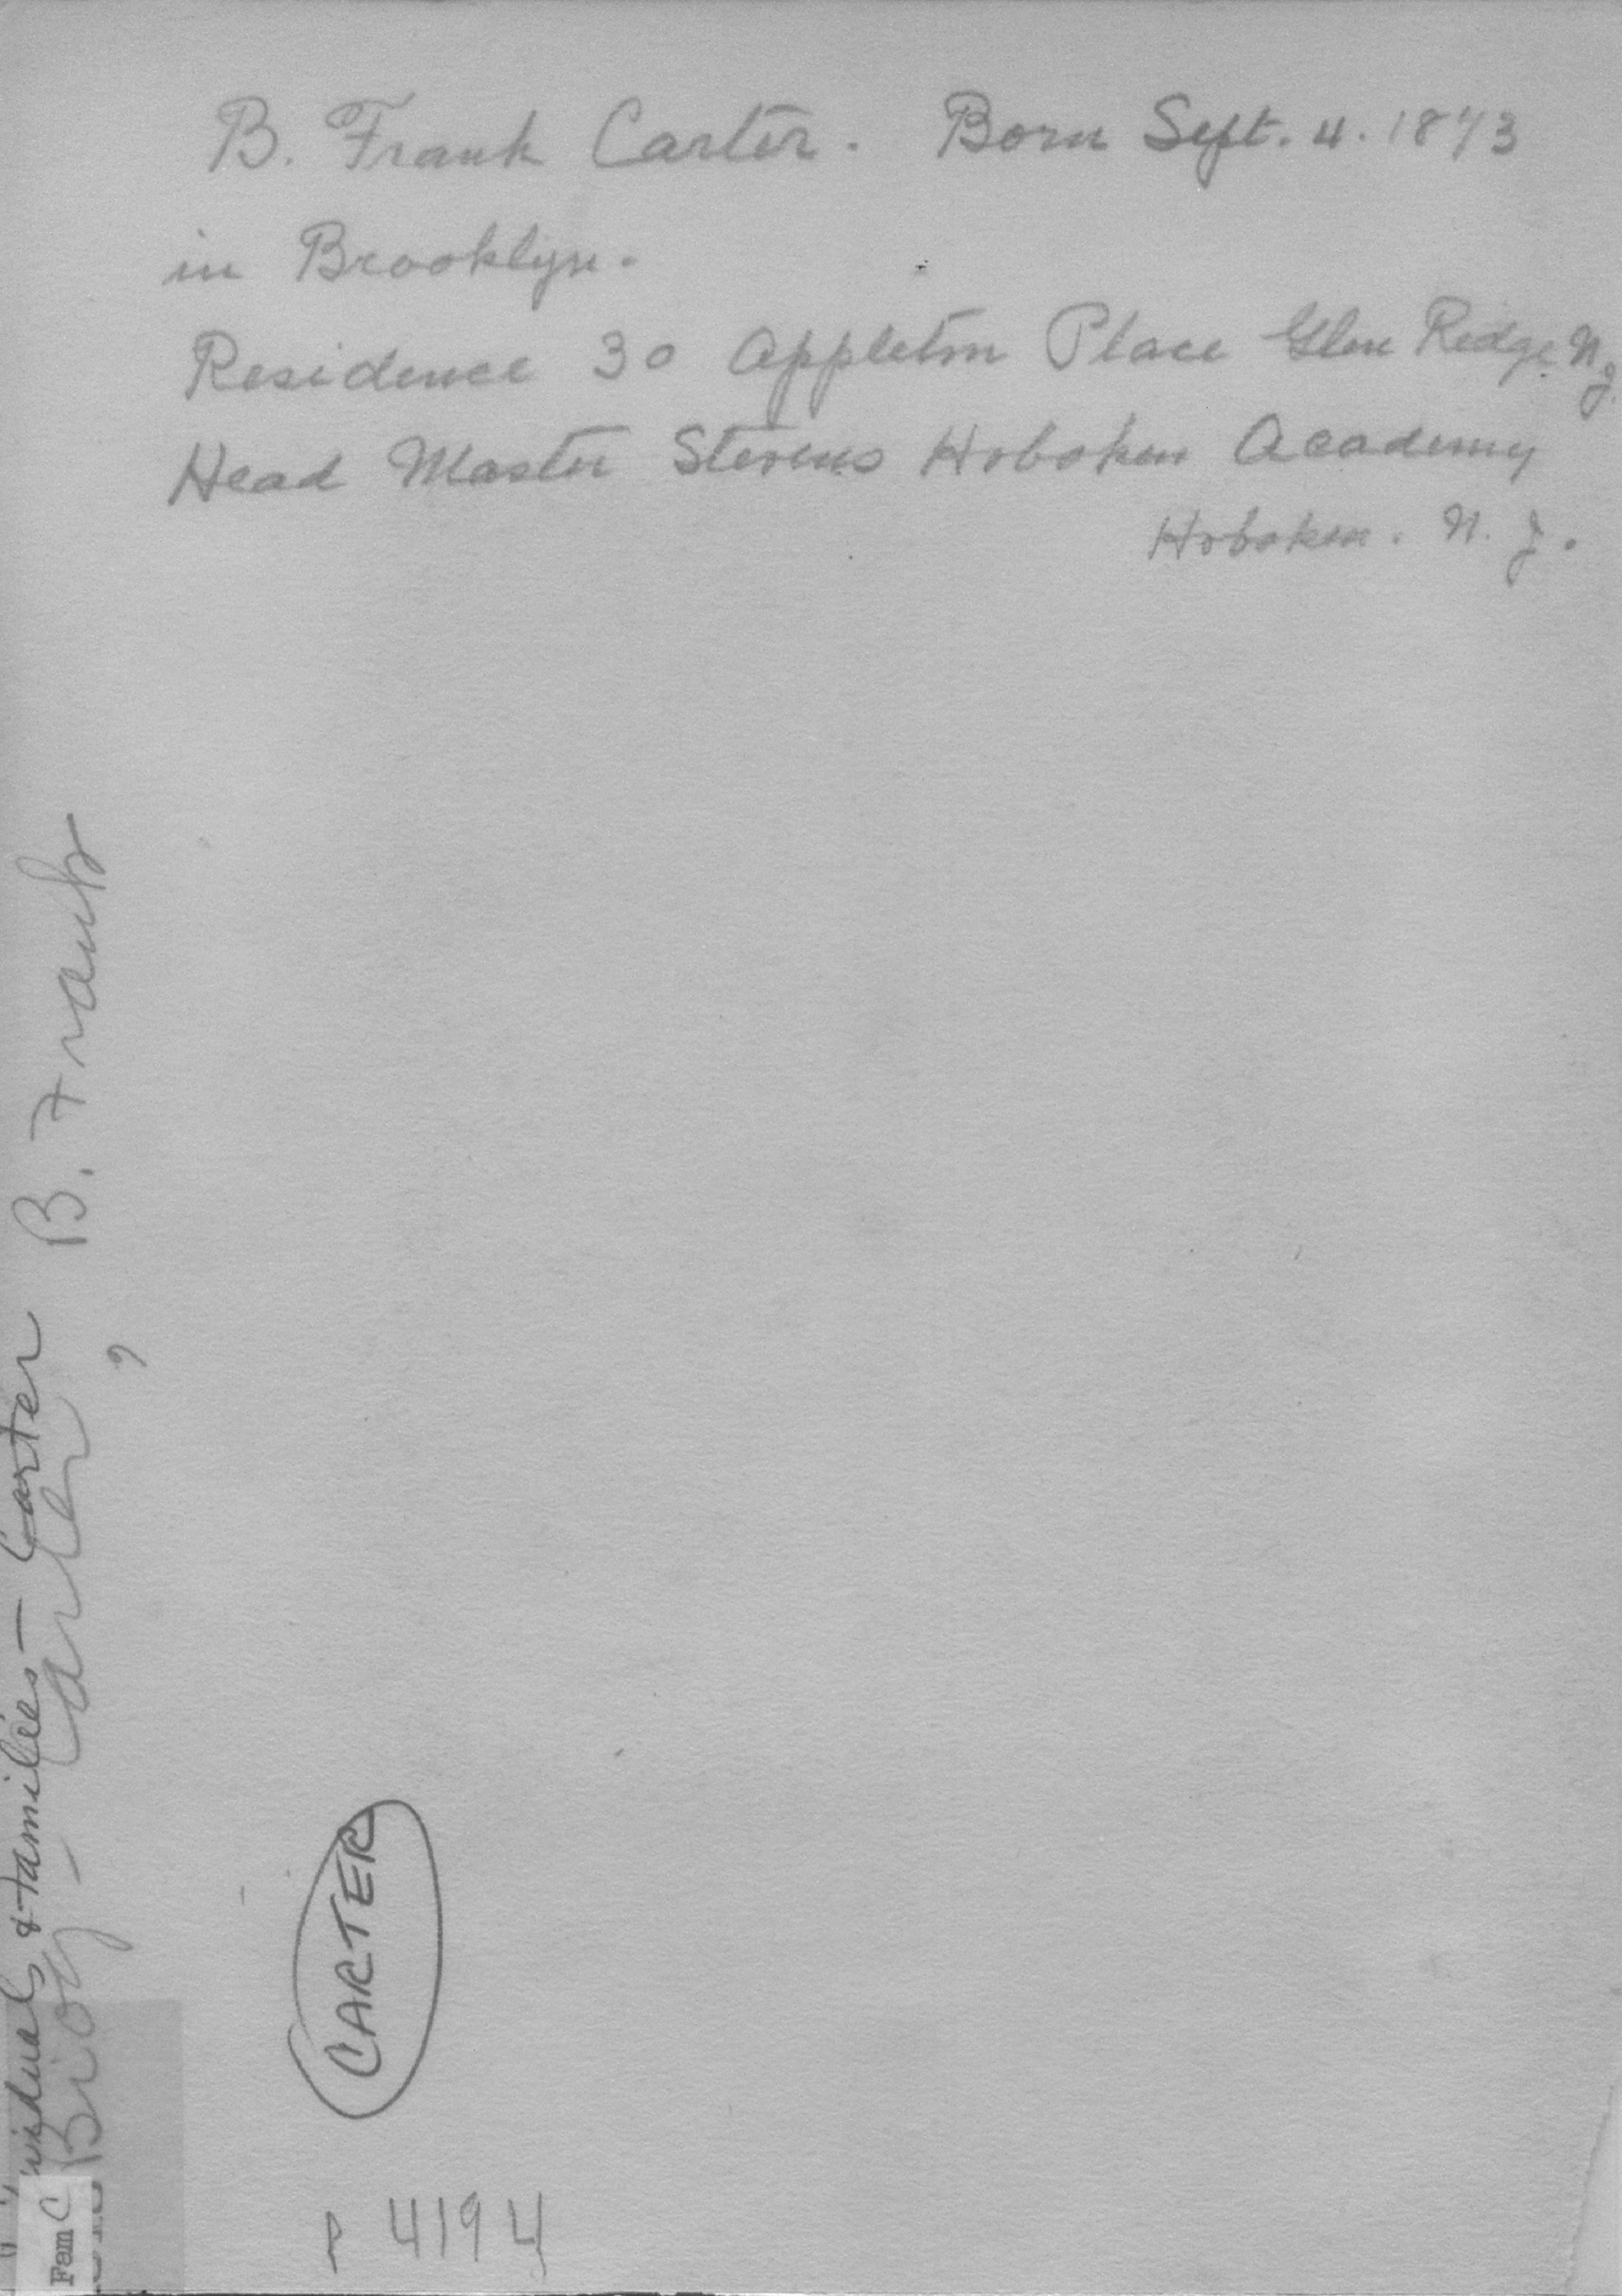 B. Frank Carter. Born Sept. 4. 1873
in Brooklyn.
Residence 30 Appleton Place Glen Ridge N.J.
Head Master Stevens Hoboken Academy
Hoboken. N. J.
& Families - Carter
Biog - Carter, B. Frank
CARTER
P 4194
Fam C